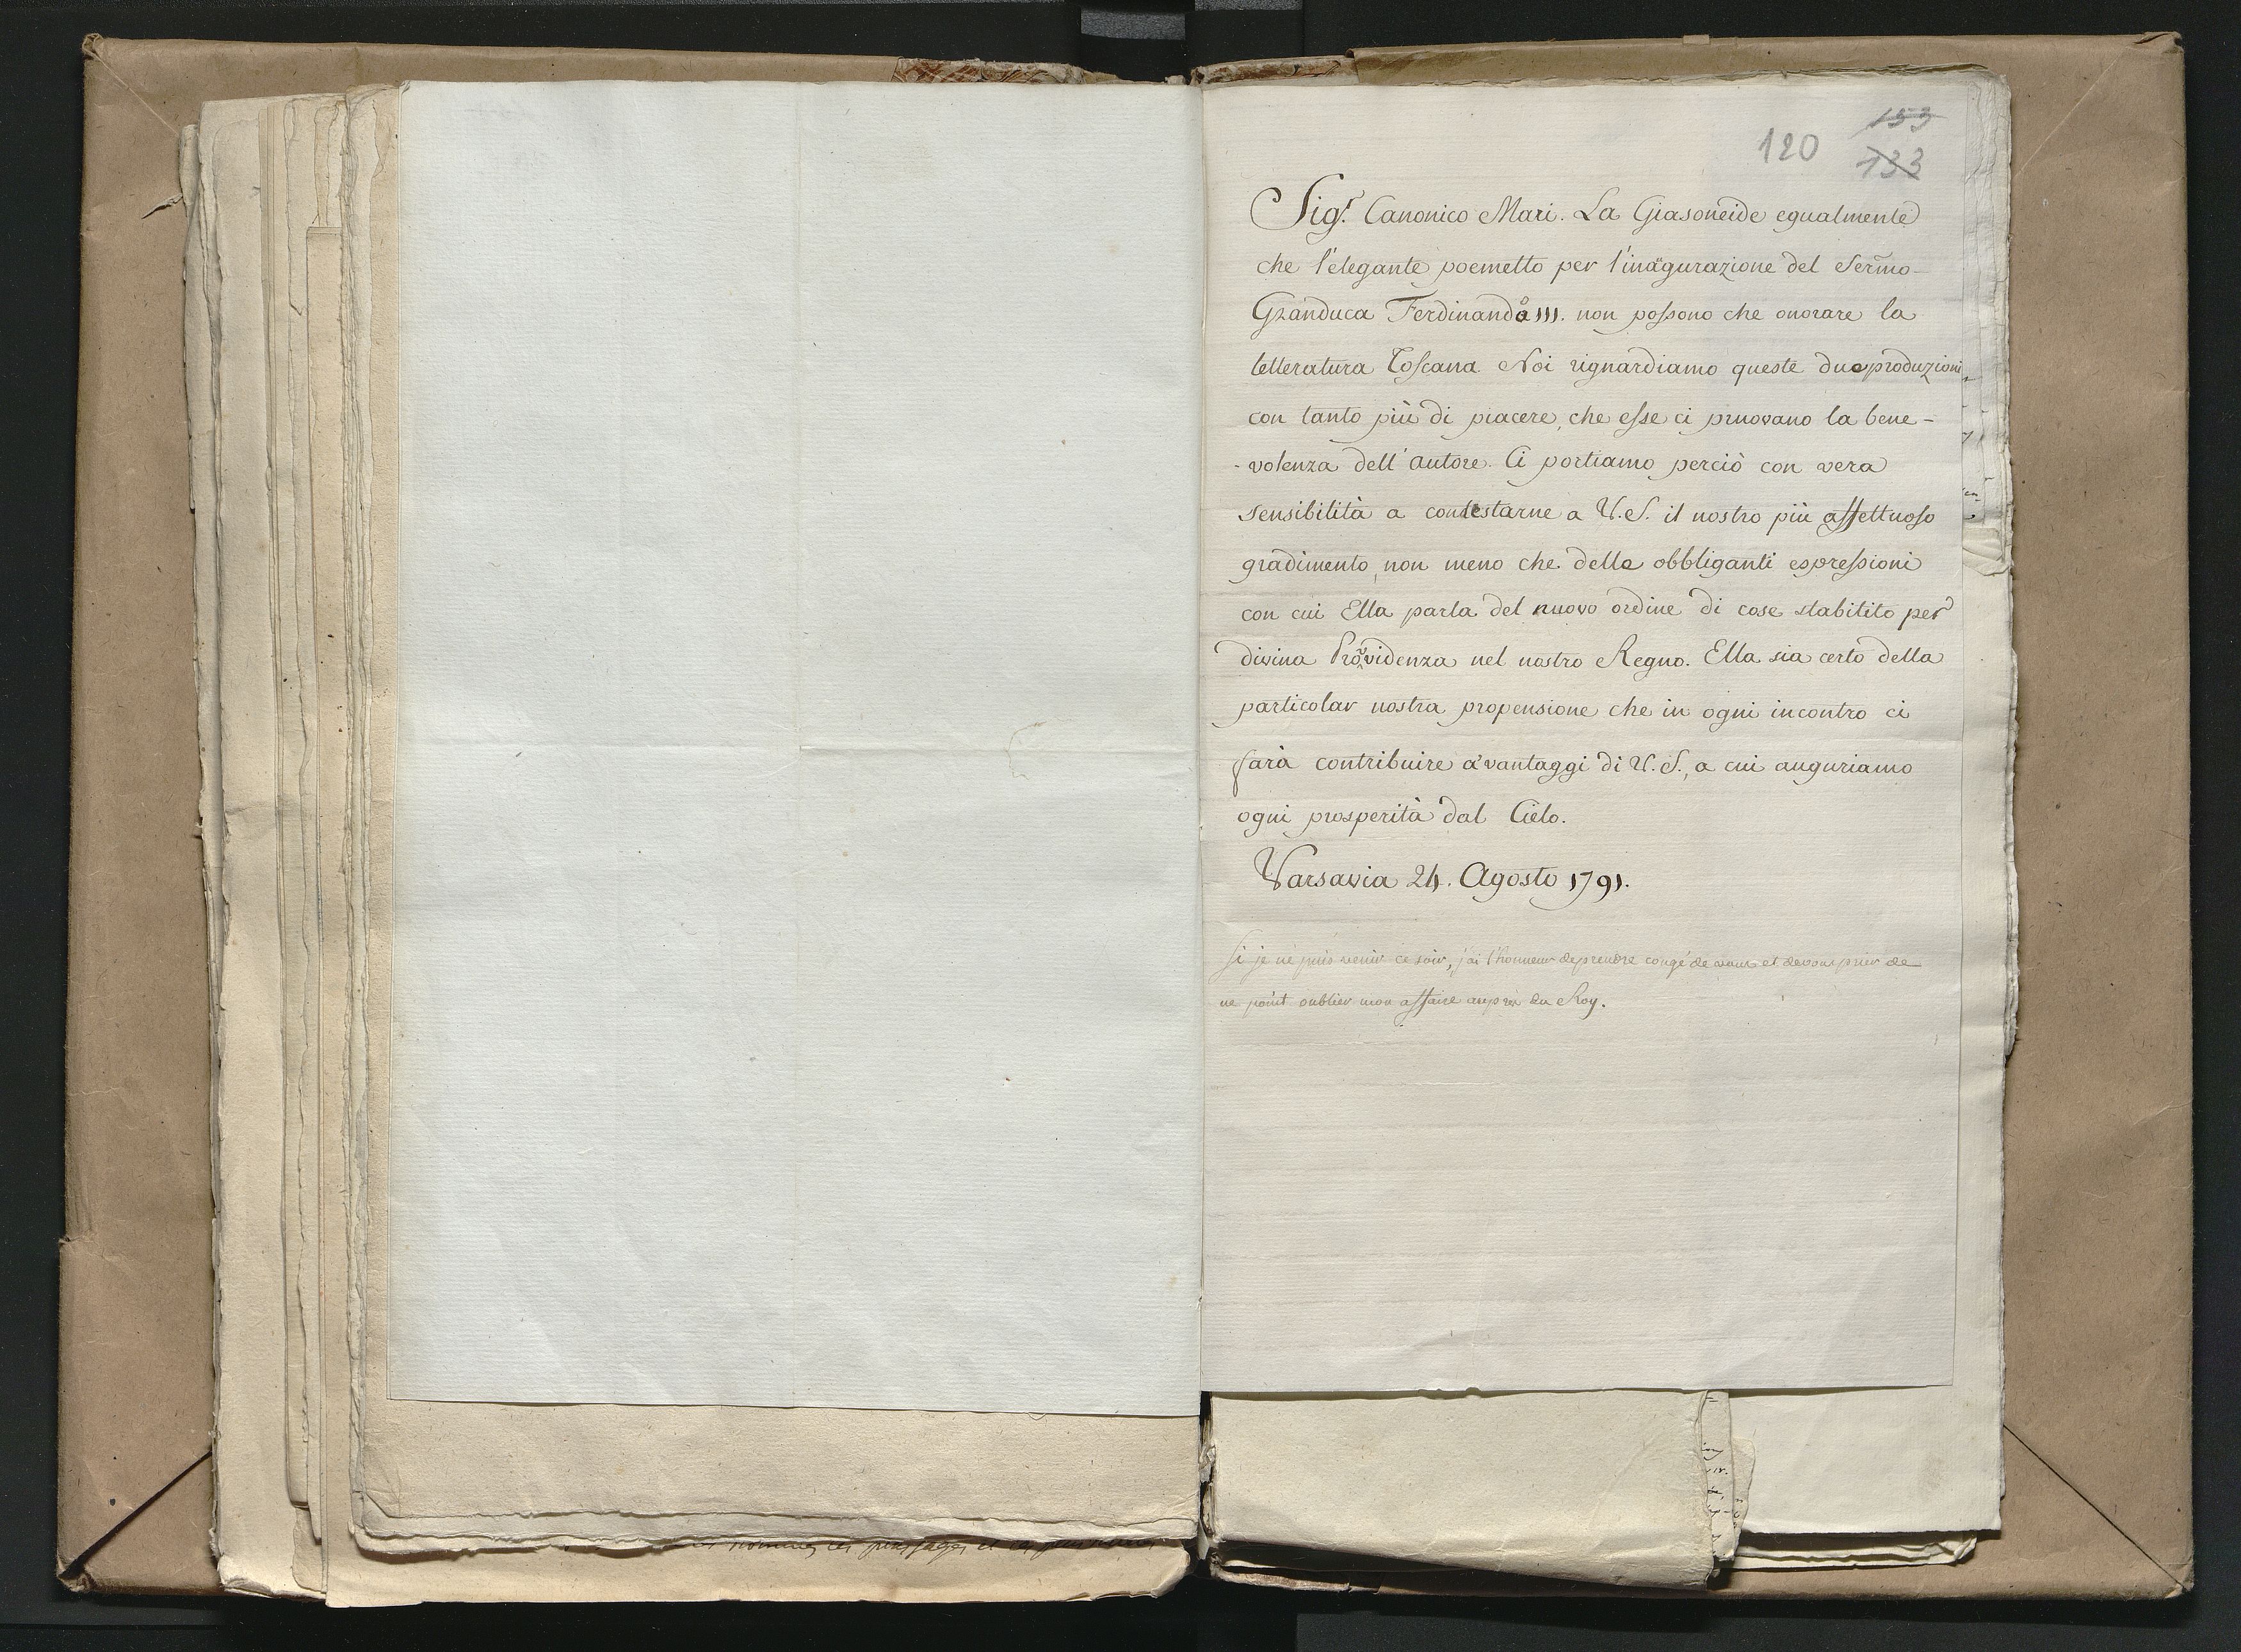 153
120 133
Sigr. Canonico Mari. La Giasoneide egualmente
che l'elegante poemetto per l'inaugurazione del Sermo
Granduca Ferdinando III. non possono che onorare la
letteratura Toscana. Noi rignardiamo queste due produzioni
con tanto più di piacere, che esse ci pruovano la bene-
-volenza dell'autore. Ci portiamo perciò con vera
sensibilità a contestarne a V.S. il nostro più affettuoso
gradimento, non meno che delle obbliganti espressioni
con cui Ella parla del nuovo ordine di cose stabilito per
divina Provvidenza nel nostro Regno. Ella sia certo della
particolar nostra propensione che in ogni incontro ci
farà contribuire a' vantaggi di V.S., a cui auguriamo
ogni prosperità dal Cielo.
Varsavia 24. Agosto 1791.
Si je ne puis venir ce soir, j'ai l'honneur de prendre congé de vous et de vous prier de
ne point oublier mon affaire auprès du Roy.